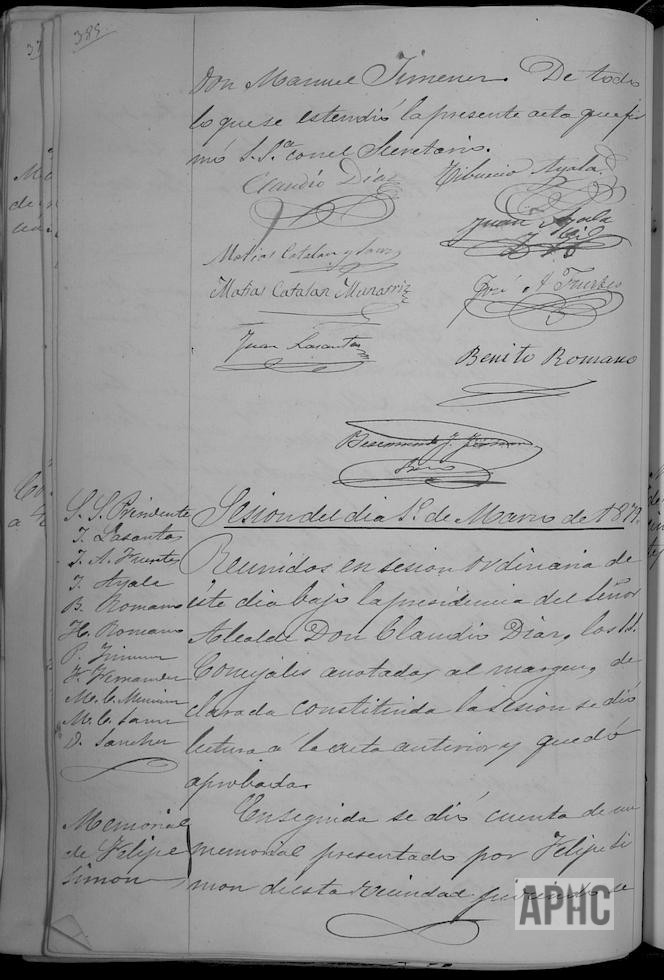 385.
Don Manuel Jimenez. De todo
lo que se estendió la presente acta que fir
mó S. Sª con el Secretario.
Claudio Diaz
Tiburcio Ayala
Juan Ayala
Matias Catalan y Sanz
Matias Catalan Munarriz
José A Fuertes
Juan Lasantas
Benito Romano
S. S. Presidente
J. Lasantas
J. A. Fuertes
J. Ayala
B. Romano
H. Romano
P. Jimenez
F. Fernandez
M. C.
M. C. Sanz
D. Sanchez
Sesion del dia 1º de Marzo de 1879.
Reunidos en sesion ordinaria de
este dia bajo la presidencia del Señor
Alcalde Don Claudio Diaz, los SS.
Concejales anotados al margen, de
clarada constituida la sesion se dió
lectura á la acta anterior y quedó
aprobada.
Memorial
de Felipe
Simon
Enseguida se dió cuenta de un
memorial presentado por Felipe Si
mon de esta vecindad
APHC